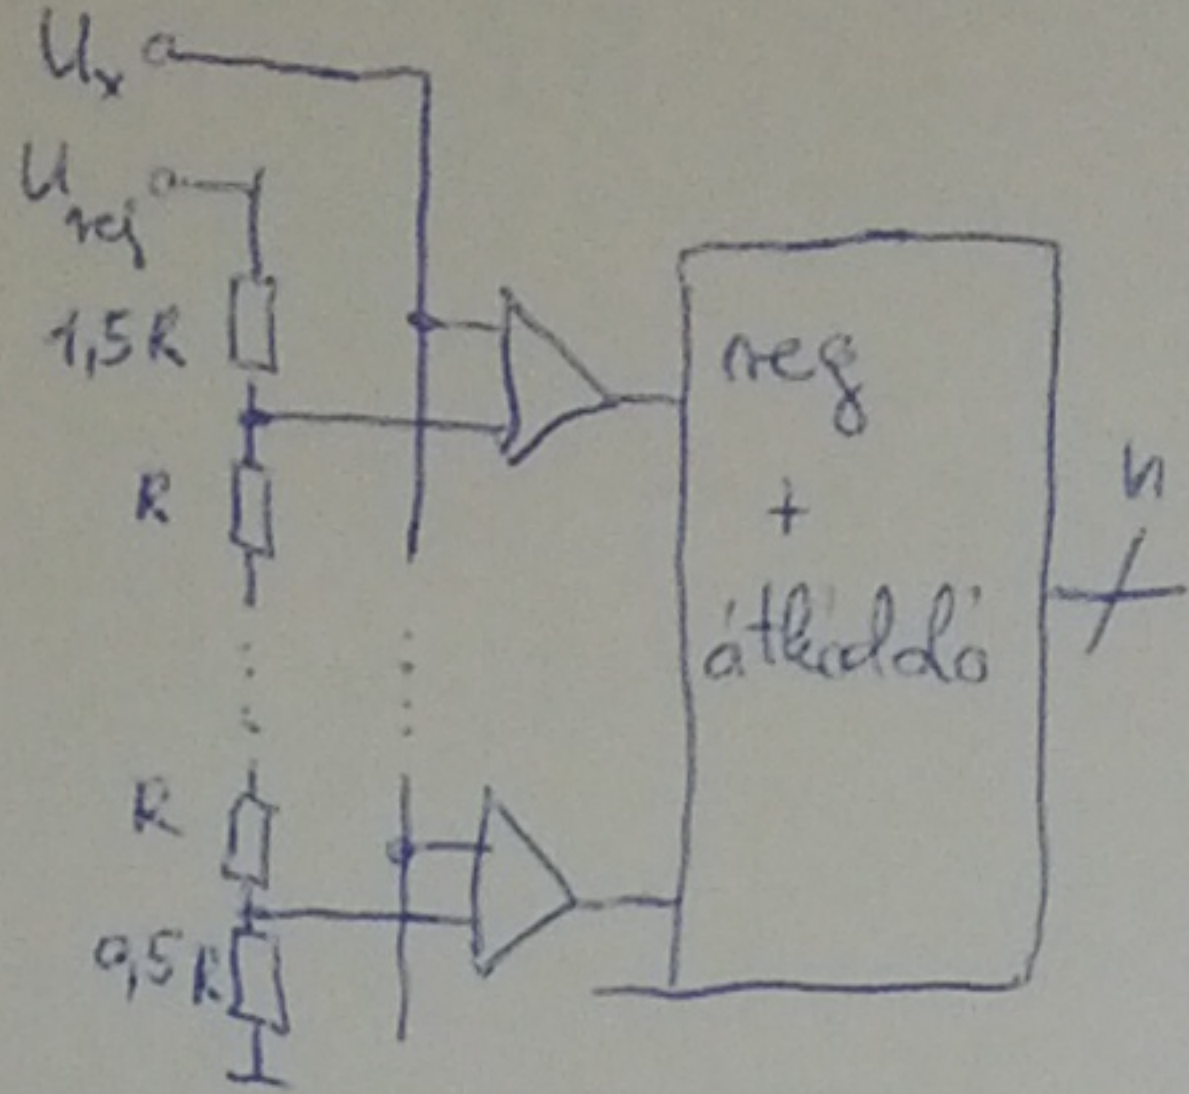 Ux
Uref
1,5R
R
R
0,5R
reg
+
átkódoló
n